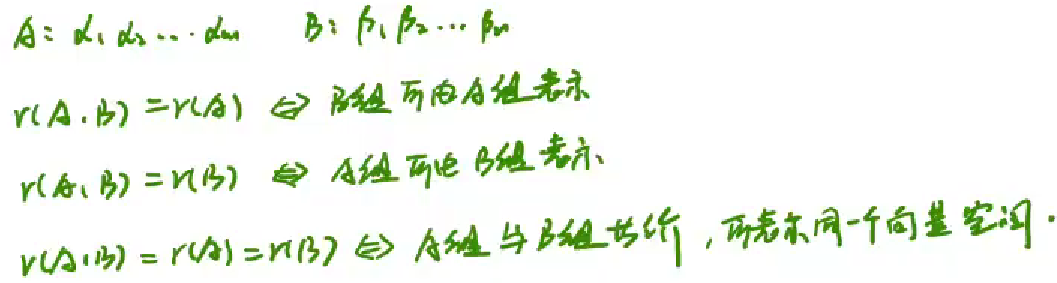 A: α₁ α₂ … αₘ B: β₁ β₂ … βₙ
r(A,B) = r(A) ⇔ B组可由A组表示
r(A,B) = r(B) ⇔ A组可由B组表示.
r(A,B) = r(A) = r(B) ⇔ A组与B组等价,可表示同一个向量空间.